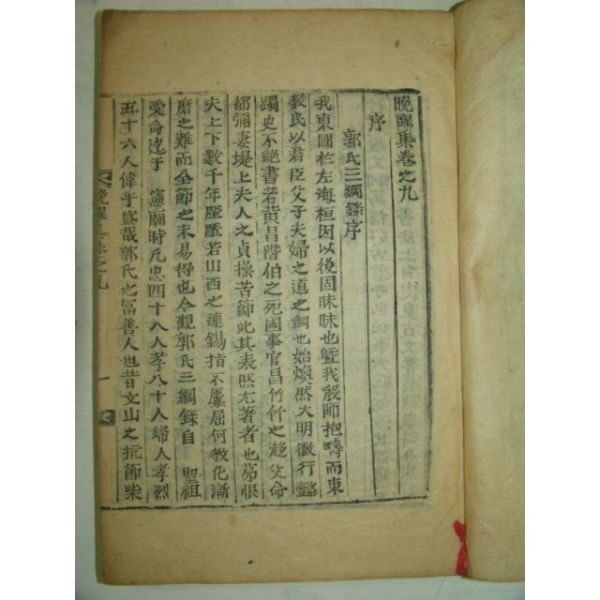 晩醒集卷之九
序
郭氏三綱錄序
我東國於左海桓因以後固昧昧也曁我殷師抱疇而東
敎民以君臣父子夫婦之道之綱也始煥然大明徽行懿
躅史不絶書若黃昌階伯之死國事官昌竹竹之趍父命
都彌妻堤上夫人之貞操苦節此其表然左著者也第恨
夫上下數千年歷歷若山西之連錫指不屢屈何敎化漸
磨之難而全節之未易得也今觀郭氏三綱錄自 聖祖
受命迄于 憲廟時凡忠四十八人孝八十人婦人孝烈
五十六人偉乎盛哉郭氏之富善人也昔文山之抗節柴
晩醒集卷之九 一